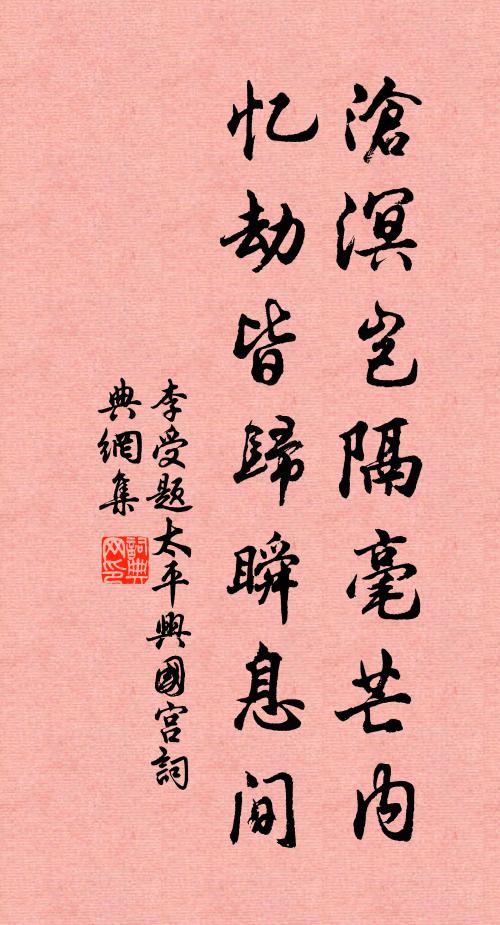 滄溟岂隔毫芒内
忆劫皆歸瞬息间
李受题太平興國宫詞
典網集
詞典网印